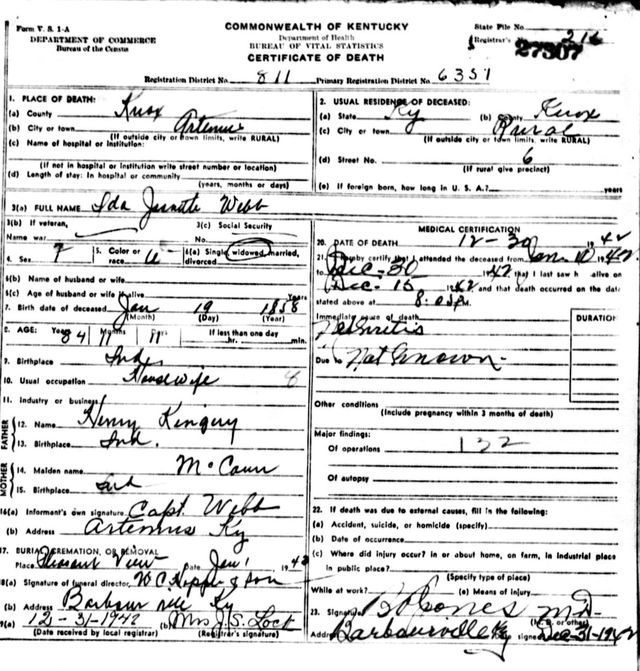 Form V. S. 1-A
COMMONWEALTH OF KENTUCKY
State File No.
DEPARTMENT OF COMMERCE
Department of Health
Registrar's No. 216
Bureau of the Census
BUREAU OF VITAL STATISTICS
27307
CERTIFICATE OF DEATH
Registration District No. 811 Primary Registration District No. 6351
1. PLACE OF DEATH:
(a) County Knox
(b) City or town Artemus
(If outside city or town limits, write RURAL)
(c) Name of hospital or institution:
(If not in hospital or institution write street number or location)
(d) Length of stay: In hospital or community
(years, months or days)
2. USUAL RESIDENCE OF DECEASED:
(a) State Ky (b) County Knox
(c) City or town Rural
(If outside city or town limits, write RURAL)
(d) Street No. 6
(If rural give precinct)
(e) If foreign born, how long in U. S. A.? years
3(a) FULL NAME Ida Jannate Webb
3(b) If veteran, 3(c) Social Security
Name war No.
4. Sex F 5. Color or race W 6(a) Single, widowed, married, divorced
6(b) Name of husband or wife
6(c) Age of husband or wife if alive Years
7. Birth date of deceased Jan 19 1858
(Month) (Day) (Year)
8. AGE: Years 84 Months 11 Days 11 If less than one day
hr. min.
9. Birthplace Ind
10. Usual occupation Housewife 8
11. Industry or business
FATHER
12. Name Henry Kingery
13. Birthplace Ind.
MOTHER
14. Maiden name McCaun
15. Birthplace Ind
16(a) Informant's own signature Capt. Webb
(b) Address Artemus Ky
17. BURIAL, CREMATION, OR REMOVAL
Place Pleasant View Jan 1 1943
18(a) Signature of funeral director, W C Hopper & Son
(b) Address Barbourville Ky
19(a) 12-31-1942 (b) Mrs J. S. Lock
(Date received by local registrar) (Registrar's signature)
MEDICAL CERTIFICATION
20. DATE OF DEATH 12-30 1942
21. I hereby certify that I attended the deceased from Jan. 10 1942
to Dec-30 1942, that I last saw h alive on
Dec-15 1942 and that death occurred on the date
stated above at 8: P m.
Immediate cause of death DURATION
Nephritis
Due to Not Known
Other conditions
(Include pregnancy within 3 months of death)
Major findings:
Of operations 132
Of autopsy
22. If death was due to external causes, fill in the following:
(a) Accident, suicide, or homicide (specify)
(b) Date of occurrence
(c) Where did injury occur? in or about home, on farm, in industrial place
in public place?
(Specify type of place)
While at work? (e) Means of injury
23. Signature M.D.
(M. D. or other)
Address Barbourville Ky Date signed Dec-31-1942